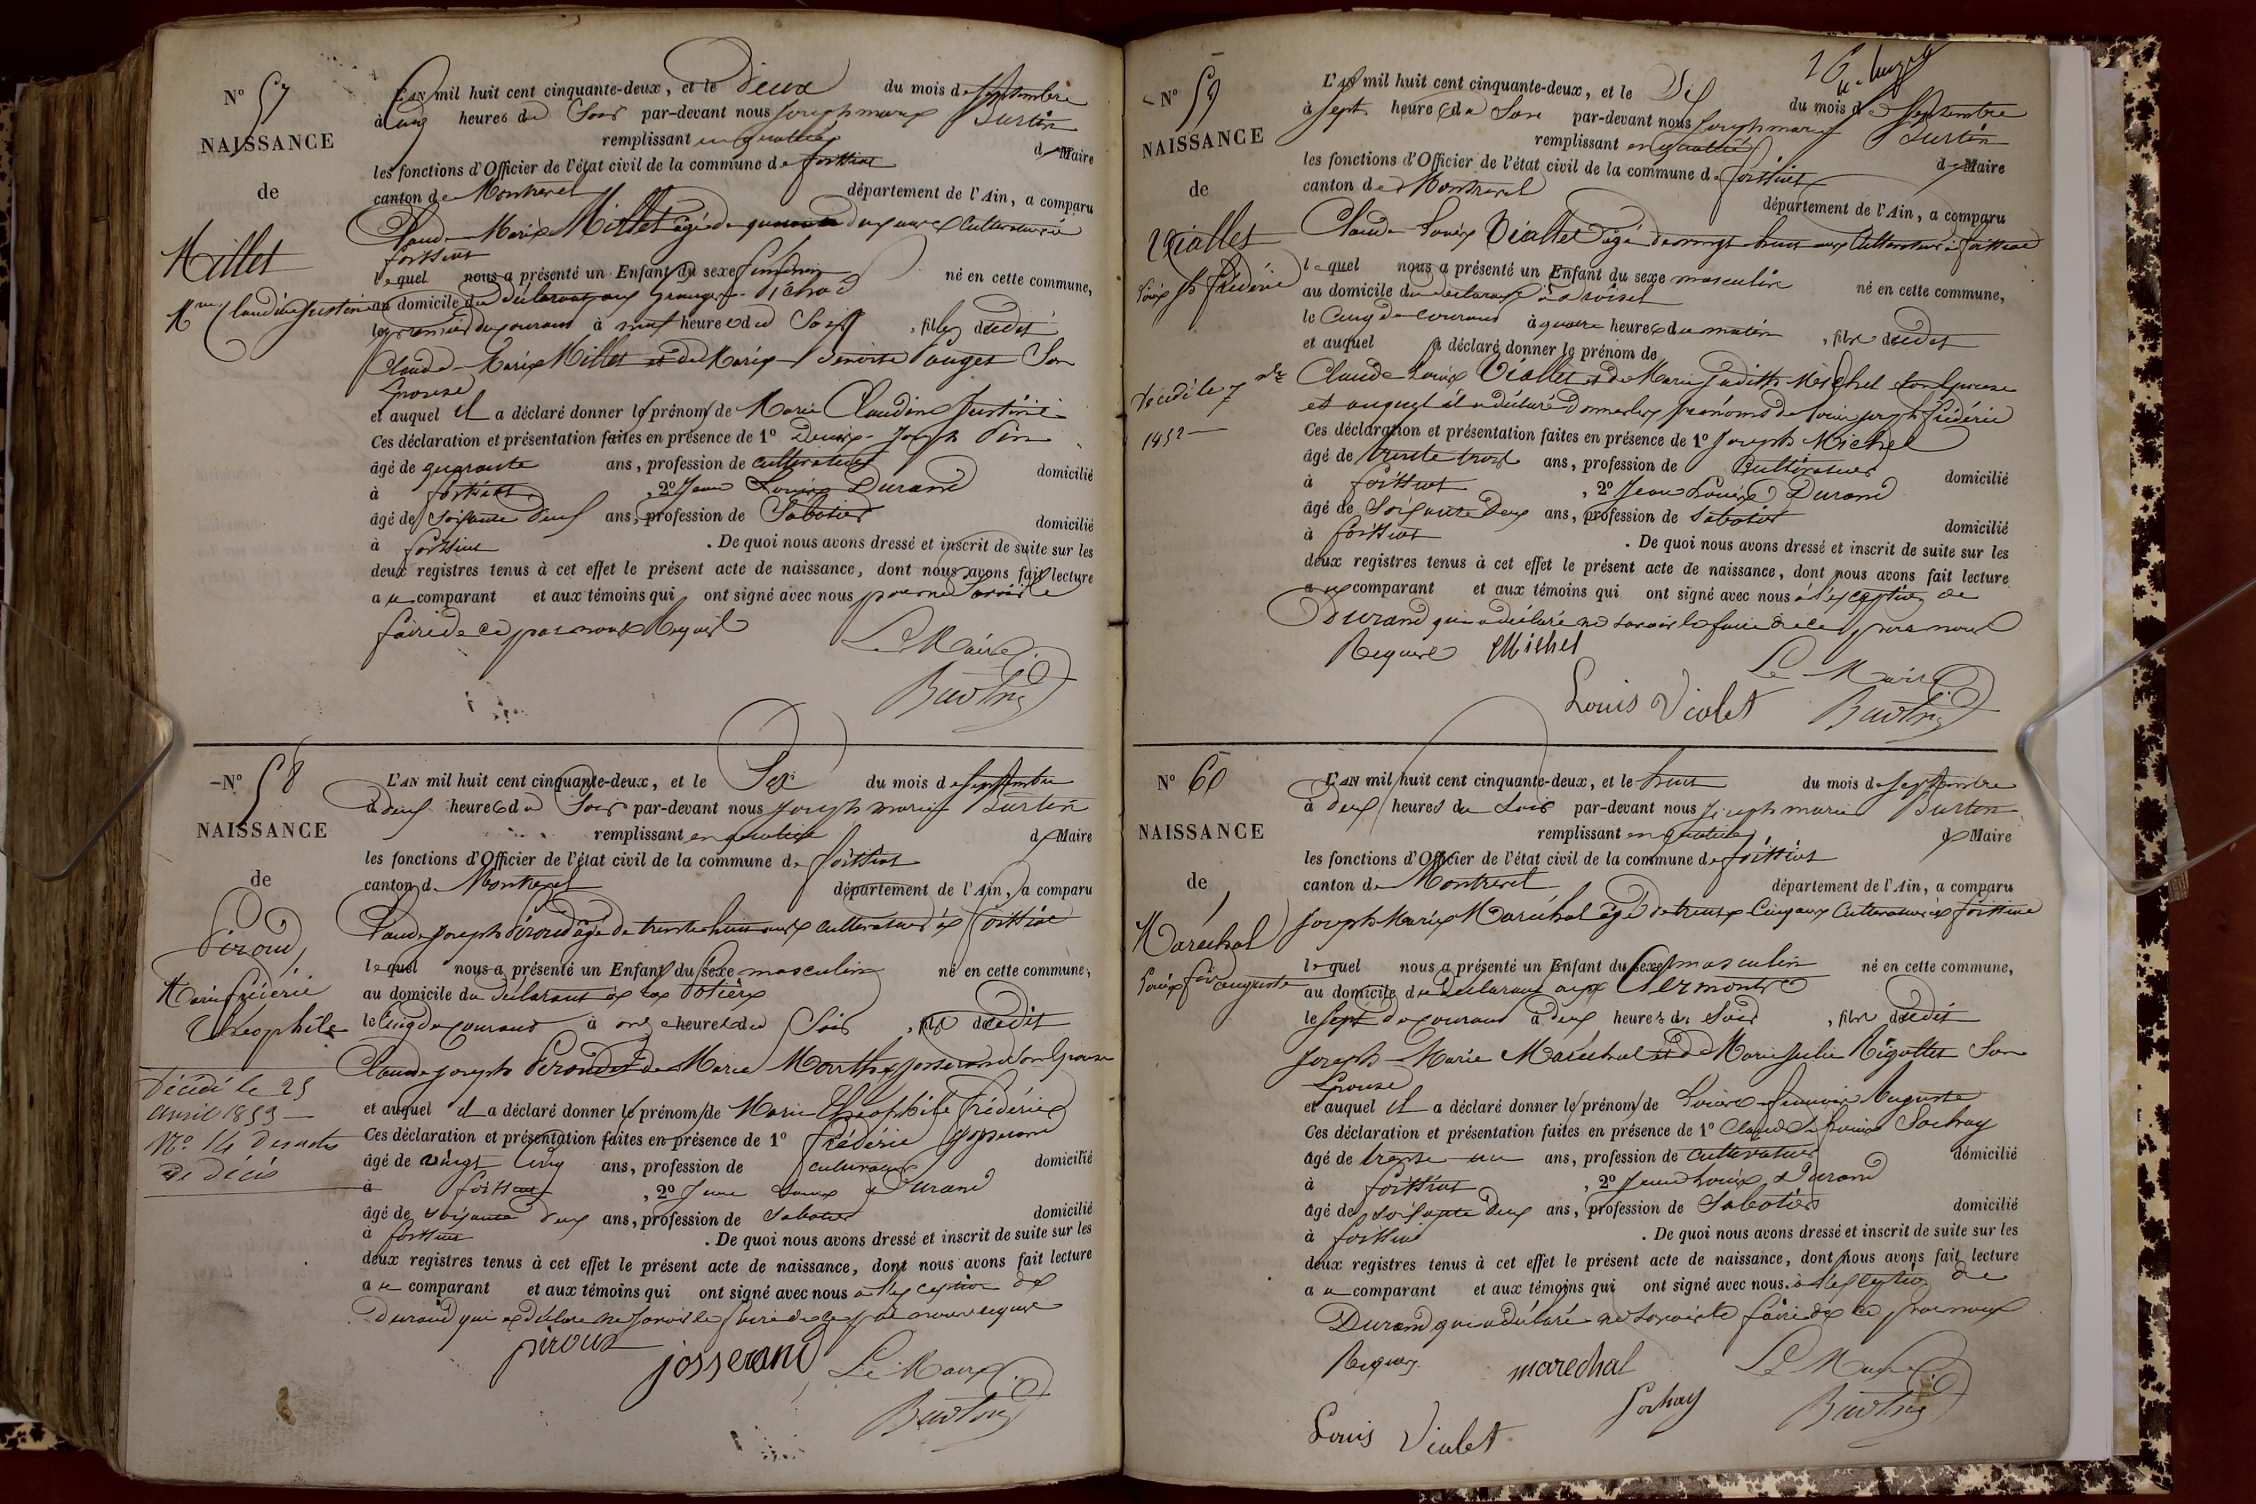 N° 57
NAISSANCE
de
Millet
Mie Claudine Justine
L'AN mil huit cent cinquante-deux, et le Deux du mois de Septembre
à Cinq heures du Soir par-devant nous Joseph marie Burtin
remplissant en qualité de Maire
les fonctions d'Officier de l'état civil de la commune de foissiat
canton de Montrevel département de l'Ain, a comparu
Claude Marie Millet âgé de quarante deux ans Cultivateur à
foissiat
lequel nous a présenté un Enfant du sexe féminin né en cette commune,
au domicile du déclarant aux
le premier du courant à neuf heures du Soir, fille dudit
Claude Marie Millet et de Marie Benoite Pouget Son
Epouse
et auquel il a déclaré donner les prénoms de Marie Claudine Justine
Ces déclaration et présentation faites en présence de 1° Denis Joseph
âgé de quarante ans, profession de cultivateur domicilié
à foissiat, 2° Jean Louis Durand
âgé de Soixante deux ans, profession de Sabotier domicilié
à foissiat. De quoi nous avons dressé et inscrit de suite sur les
deux registres tenus à cet effet le présent acte de naissance, dont nous avons fait lecture
au comparant et aux témoins qui ont signé avec nous pour ne Savoir le
faire de ce par nous Requis
Le Maire
Burtin
N° 58
NAISSANCE
de
Piroud
Marie frédéric
Théophile
Décédé le 25
avril 1859
N° 14 des actes
de Décès
L'AN mil huit cent cinquante-deux, et le Six du mois de Septembre
à deux heures du Soir par-devant nous Joseph marie Burtin
remplissant en qualité de Maire
les fonctions d'Officier de l'état civil de la commune de foissiat
canton de Montrevel département de l'Ain, a comparu
Claude Joseph Piroud âgé de trente huit ans cultivateur à foissiat
lequel nous a présenté un Enfant du sexe masculin né en cette commune,
au domicile du déclarant à la Potière
le Cinq du courant à onze heures du Soir, fils dudit
Claude Joseph Piroud et de Marie Marthe Josserand son Epouse
et auquel il a déclaré donner les prénoms de Marie Théophile Frédéric
Ces déclaration et présentation faites en présence de 1° frédéric Josserand
âgé de vingt Cinq ans, profession de cultivateur domicilié
à foissiat, 2° Jean Louis Durand
âgé de soixante deux ans, profession de Sabotier domicilié
à foissiat. De quoi nous avons dressé et inscrit de suite sur les
deux registres tenus à cet effet le présent acte de naissance, dont nous avons fait lecture
au comparant et aux témoins qui ont signé avec nous à l'exception de
Durand qui a déclaré ne Savoir le faire de ce par nous requis
piroud
josserand
Le Maire
Burtin
N° 59
NAISSANCE
de
Viallet
Louis Jh frédéric
décédé le 7 7bre
1852
L'AN mil huit cent cinquante-deux, et le Six du mois de Septembre
à Sept heures du Soir par-devant nous Joseph marie Burtin
remplissant en qualité de Maire
les fonctions d'Officier de l'état civil de la commune de foissiat
canton de Montrevel département de l'Ain, a comparu
Claude Louis Viallet âgé de vingt huit ans Cultivateur à foissiat
lequel nous a présenté un Enfant du sexe masculin né en cette commune,
au domicile du déclarant
le Cinq du courant à quatre heures du matin, fils dudit
et auquel a déclaré donner le prénom de
Claude Louis Viallet et de Marie Judith Michel son Epouse
et auquel il a déclaré Donner les prénoms de Louis joseph frédéric
Ces déclaration et présentation faites en présence de 1° Joseph Michel
âgé de trente trois ans, profession de Cultivateur domicilié
à foissiat, 2° Jean Louis Durand
âgé de Soixante Deux ans, profession de Sabotier domicilié
à foissiat. De quoi nous avons dressé et inscrit de suite sur les
deux registres tenus à cet effet le présent acte de naissance, dont nous avons fait lecture
au comparant et aux témoins qui ont signé avec nous à l'exception de
Durand qui a déclaré ne savoir le faire de ce par nous
Requis Michel
Le Maire
Louis Violet Burtin
N° 60
NAISSANCE
de
Maréchal
Louis fois auguste
L'AN mil huit cent cinquante-deux, et le huit du mois de Septembre
à deux heures du Soir par-devant nous Joseph marie Burtin
remplissant en qualité de Maire
les fonctions d'Officier de l'état civil de la commune de foissiat
canton de Montrevel département de l'Ain, a comparu
Joseph Marie Maréchal âgé de trente Cinq ans Cultivateur à foissiat
lequel nous a présenté un Enfant du sexe masculin né en cette commune,
au domicile du déclarant aux Clermonts
le Sept du courant à deux heures du Soir, fils dudit
Joseph Marie Maréchal et de Marie Julie Rigollet Son
Epouse
et auquel il a déclaré donner les prénoms de Louis francois Auguste
Ces déclaration et présentation faites en présence de 1° Claude Louis Sochay
âgé de trente un ans, profession de cultivateur domicilié
à foissiat, 2° Jean Louis Durand
âgé de Soixante deux ans, profession de Sabotier domicilié
à foissiat. De quoi nous avons dressé et inscrit de suite sur les
deux registres tenus à cet effet le présent acte de naissance, dont nous avons fait lecture
au comparant et aux témoins qui ont signé avec nous à l'exception de
Durand qui a déclaré ne savoir le faire de ce par nous
Requis marechal Le Maire
Sochay Burtin
Louis Violet